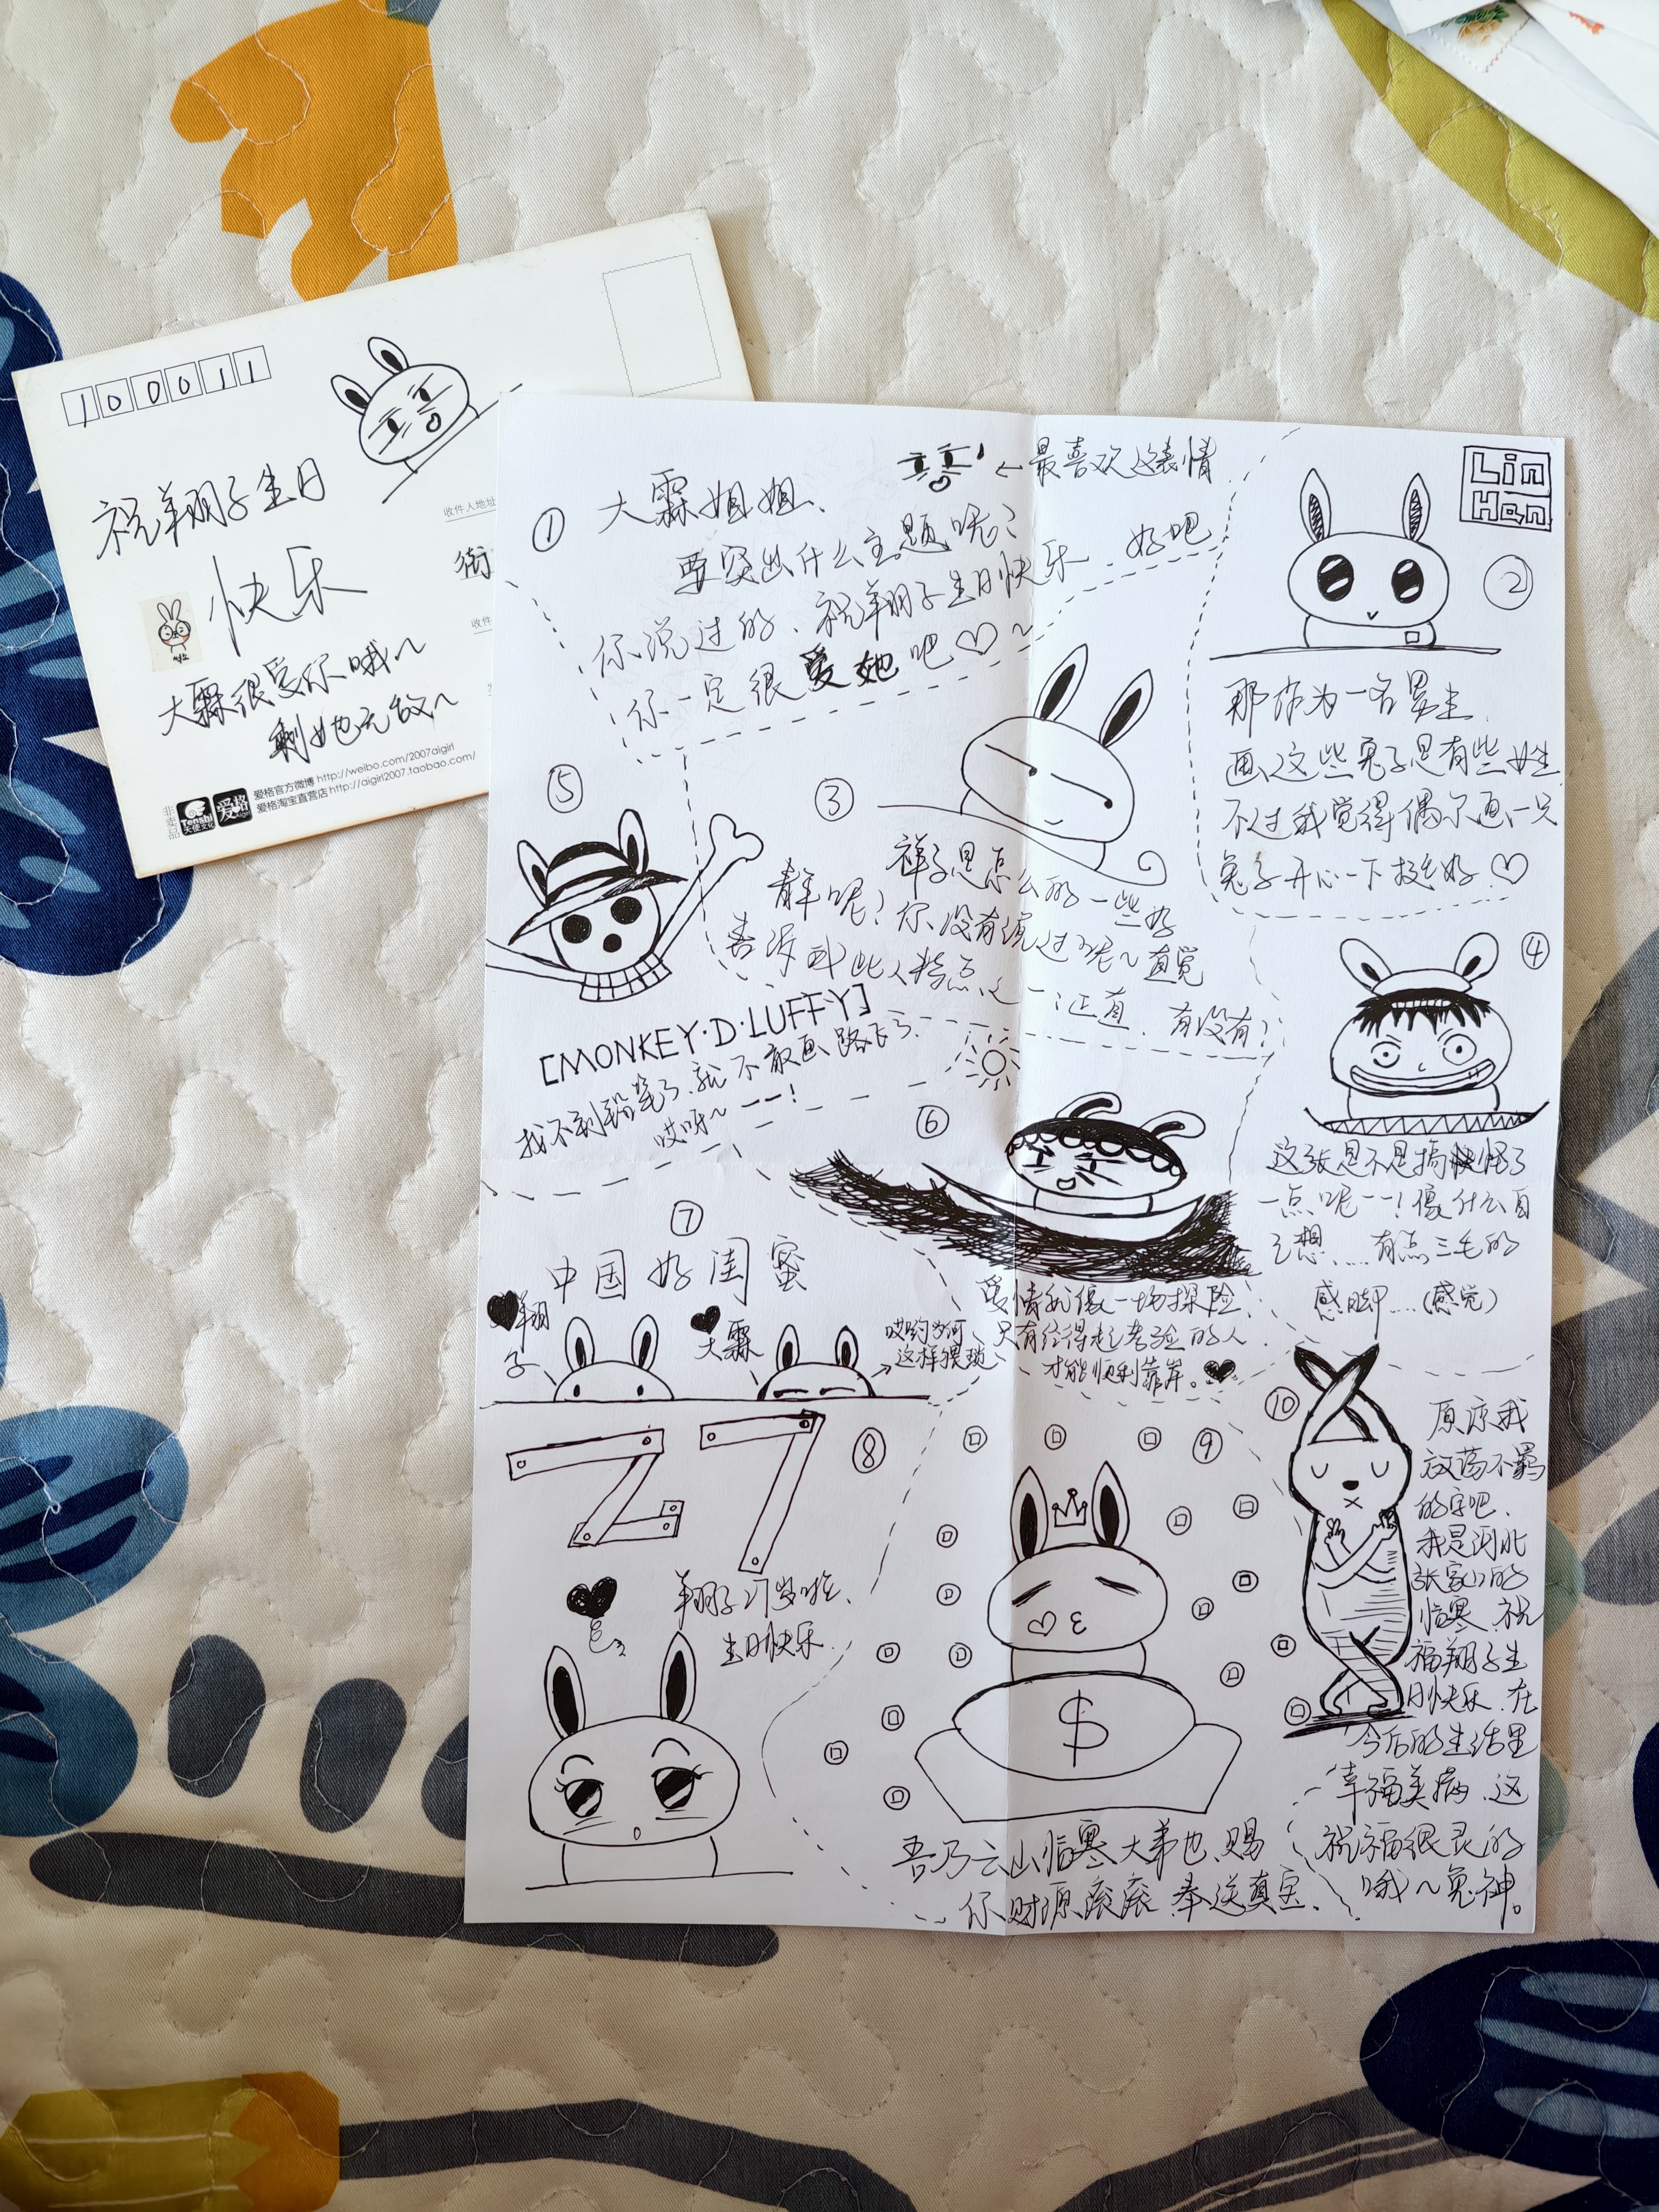 100011
祝翔子生日
快乐
大霖很爱你哦~
剩她无敌~
收件人地址
街
收件
非卖品
Tenshi
天使文化
爱格
爱格官方微博 http://weibo.com/2007aigirl
爱格淘宝直营店 http://aigirl2007.taobao.com/
① 大霖姐姐、
←最喜欢这表情
要突出什么主题呢?
好吧
你说过的、祝翔子生日快乐
你一定很爱她吧♡~
Lin
Han
②
那作为一名男生、
画这些兔子是有些娘
不过我觉得偶尔画一只
兔子开心一下挺好♡
③
祥子是怎么的一些好
青年呢?你没有说过呢~直觉
告诉我此人特点之一:正直、有没有?
④
这张是不是搞怪了
一点呢--!像什么自
己想……有点三毛的
感脚…(感觉)
⑤
[MONKEY·D·LUFFY]
找不到铅笔了就不敢画路飞了、
哎呀~--!
⑥
爱情就像一场探险、
只有经得起考验的人
才能顺利靠岸。♥
⑦
中国好闺蜜
翔子
大霖
哎哟为何
这样猥琐
27
⑧
翔子27岁啦、
生日快乐
⑨
$
吾乃云山临寒大弟也、赐
你财源滚滚 奉送真宝、
⑩
原谅我
放荡不羁
的字吧、
我是河北
张家口的
临寒、祝
福翔子生
日快乐、在
今后的生活里
幸福美满、这
祝福很灵的
哦~兔神。